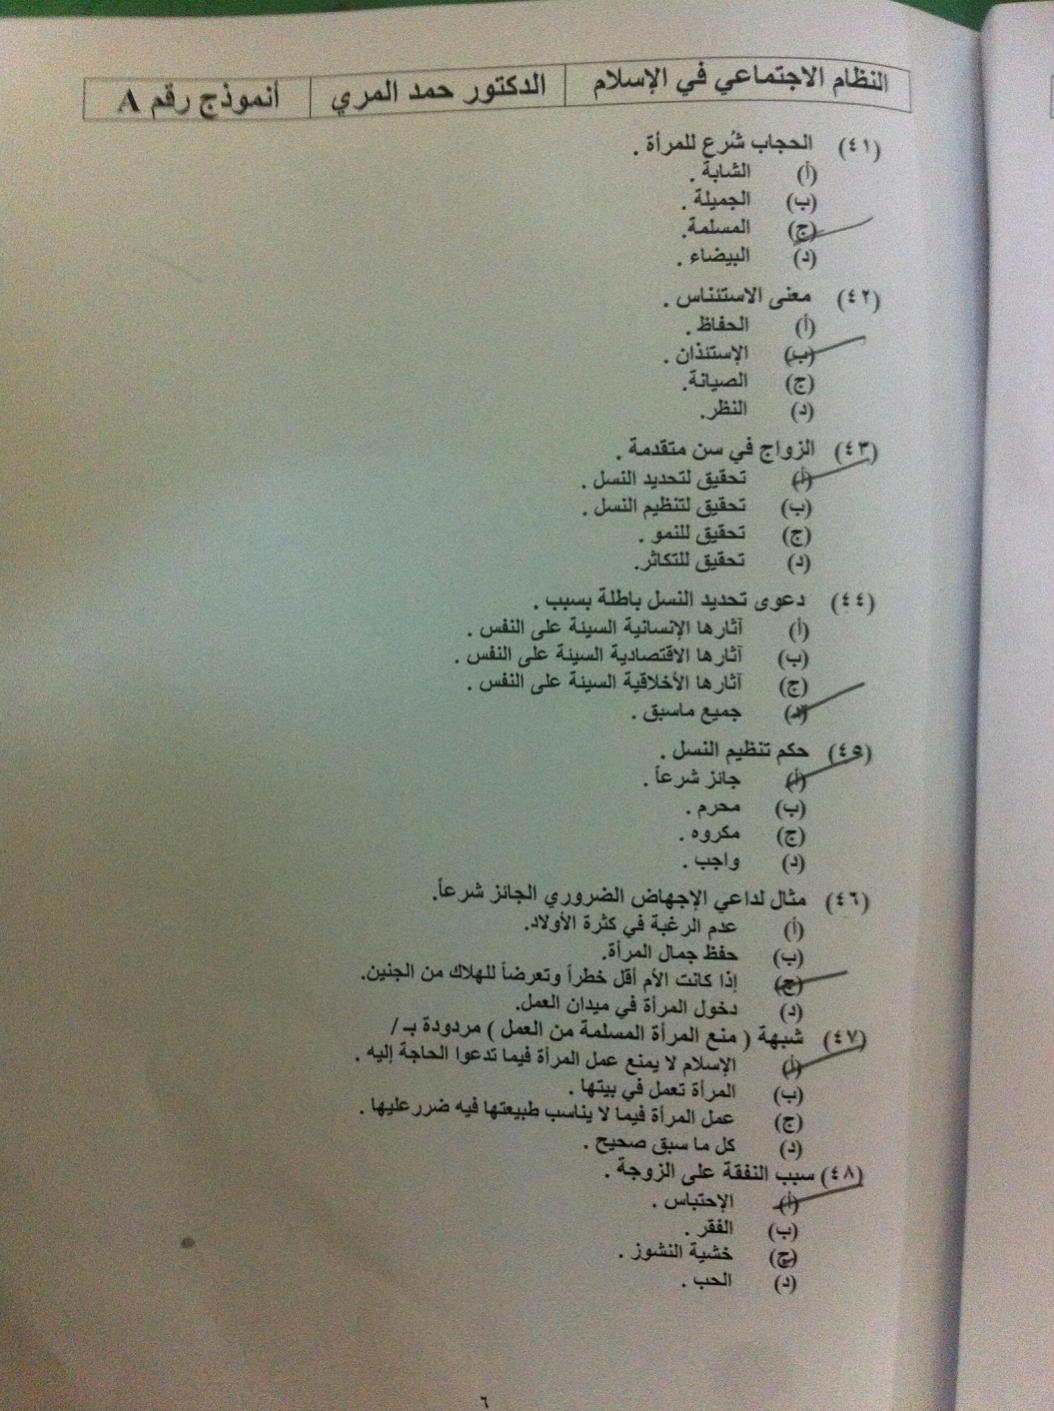 النظام الاجتماعي في الإسلام الدكتور حمد المري أنموذج رقم A
(٤١) الحجاب شُرع للمرأة .
(أ) الشابة .
(ب) الجميلة .
(ج) المسلمة.
(د) البيضاء .
(٤٢) معنى الاستئناس .
(أ) الحفاظ .
(ب) الإستئذان .
(ج) الصيانة.
(د) النظر.
(٤٣) الزواج في سن متقدمة .
(أ) تحقيق لتحديد النسل .
(ب) تحقيق لتنظيم النسل .
(ج) تحقيق للنمو .
(د) تحقيق للتكاثر.
(٤٤) دعوى تحديد النسل باطلة بسبب .
(أ) آثارها الإنسانية السيئة على النفس .
(ب) آثارها الاقتصادية السيئة على النفس .
(ج) آثارها الأخلاقية السيئة على النفس .
(د) جميع ماسبق .
(٤٥) حكم تنظيم النسل .
(أ) جائز شرعاً .
(ب) محرم .
(ج) مكروه .
(د) واجب .
(٤٦) مثال لداعي الإجهاض الضروري الجائز شرعاً.
(أ) عدم الرغبة في كثرة الأولاد.
(ب) حفظ جمال المرأة.
(ج) إذا كانت الأم أقل خطراً وتعرضاً للهلاك من الجنين.
(د) دخول المرأة في ميدان العمل.
(٤٧) شبهة ( منع المرأة المسلمة من العمل ) مردودة بـ /
(أ) الإسلام لا يمنع عمل المرأة فيما تدعوا الحاجة إليه .
(ب) المرأة تعمل في بيتها .
(ج) عمل المرأة فيما لا يناسب طبيعتها فيه ضررعليها .
(د) كل ما سبق صحيح .
(٤٨) سبب النفقة على الزوجة .
(أ) الإحتباس .
(ب) الفقر .
(ج) خشية النشوز .
(د) الحب .
٦